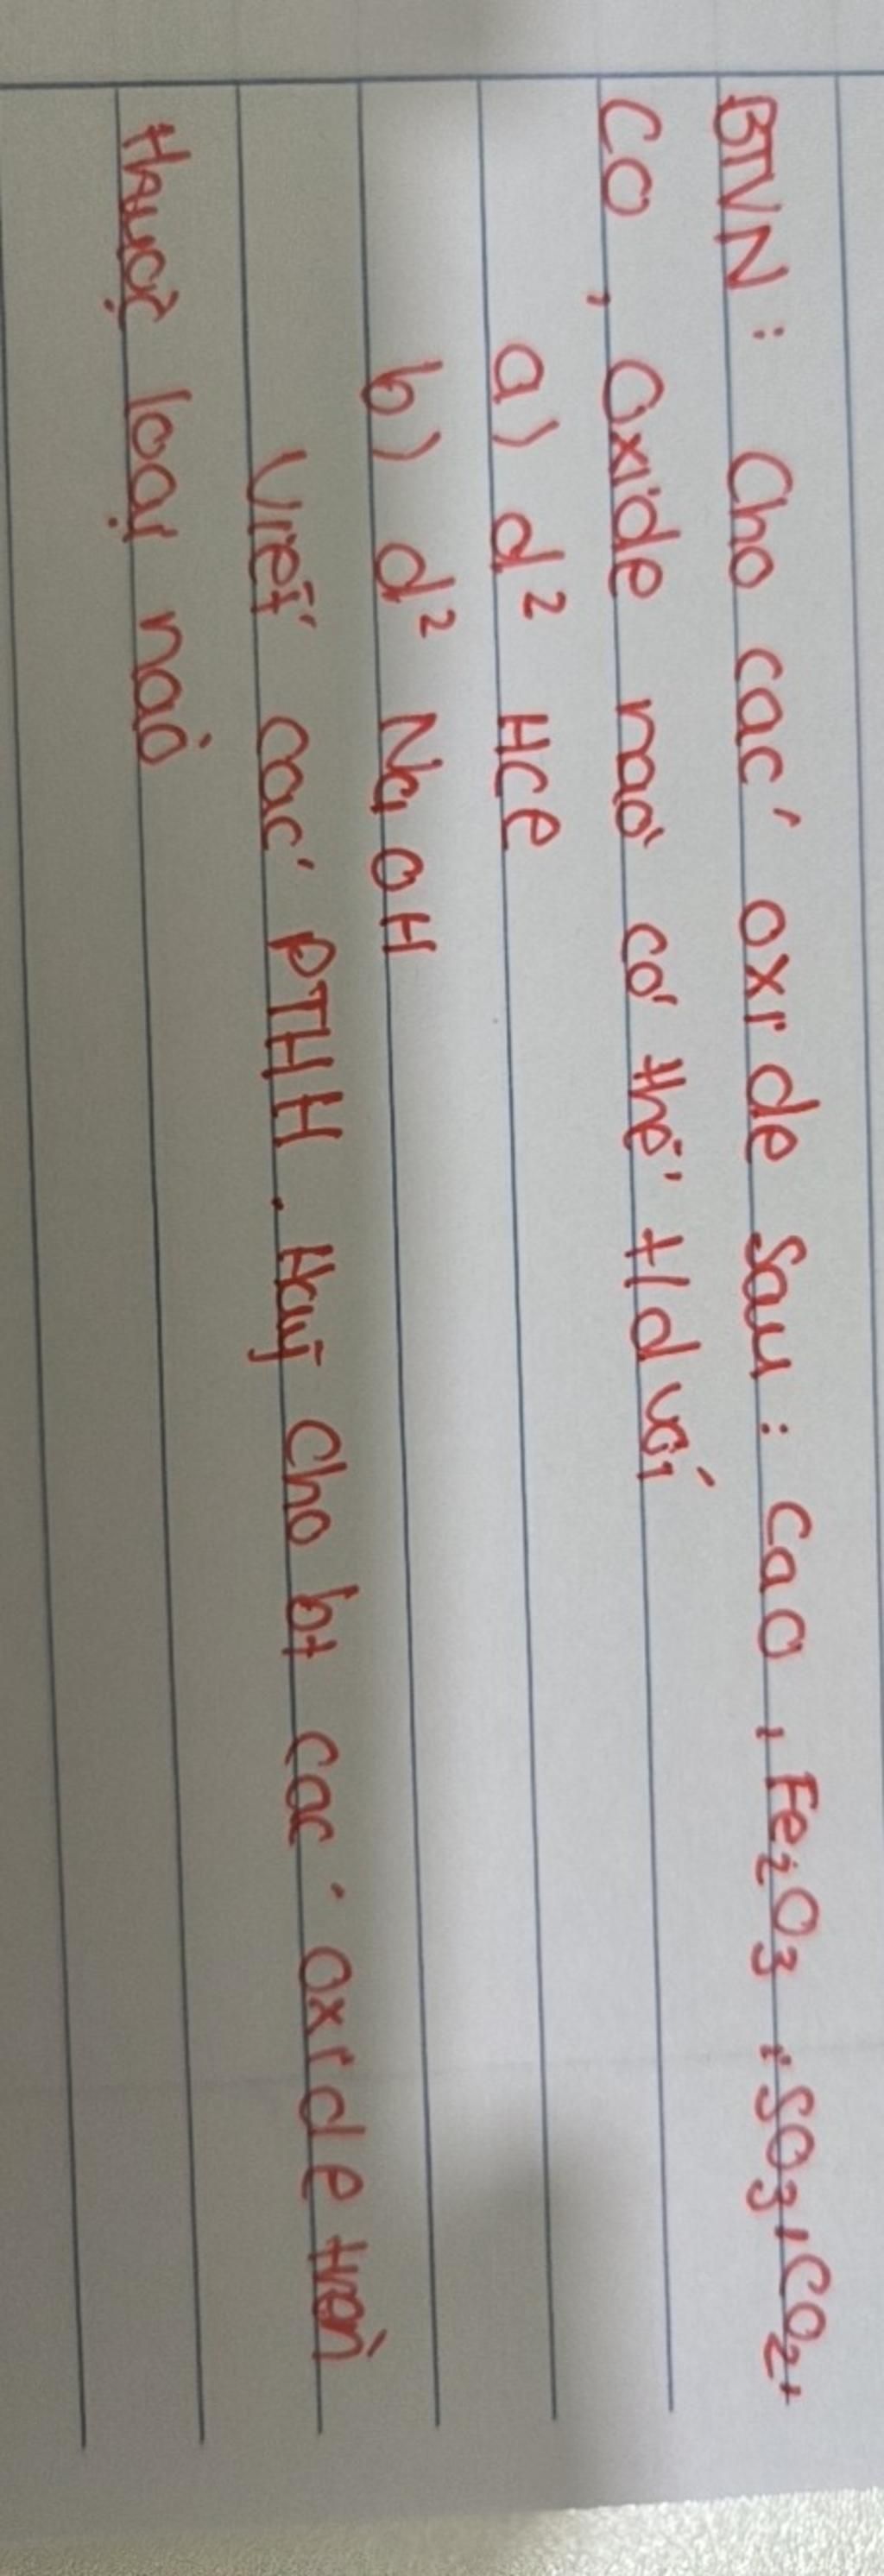 BTVN: Cho các oxide sau: CaO, Fe₂O₃, SO₃, CO₂,
CO, Oxide nào có thể t/d với
a) d² HCl
b) d² NaOH
Viết các PTHH. Hãy cho bt các oxide trên
thuộc loại nào